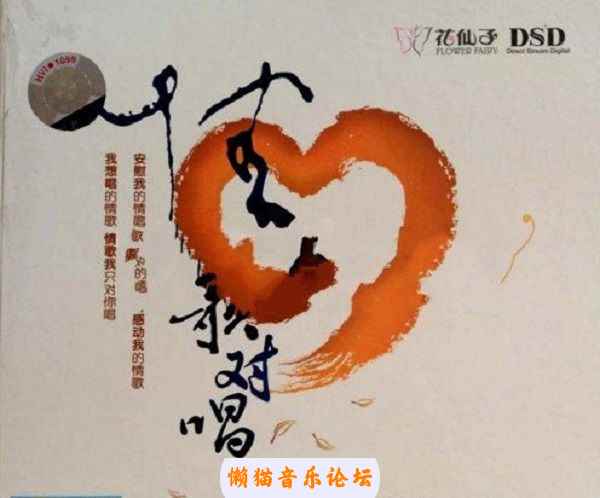 HVI 1099
花仙子
FLOWER FAIRY
DSD
Direct Stream Digital
情歌对唱
安慰我的情歌
的唱
感动我的情歌
我想唱的情歌 情歌我只对你唱
懒猫音乐论坛